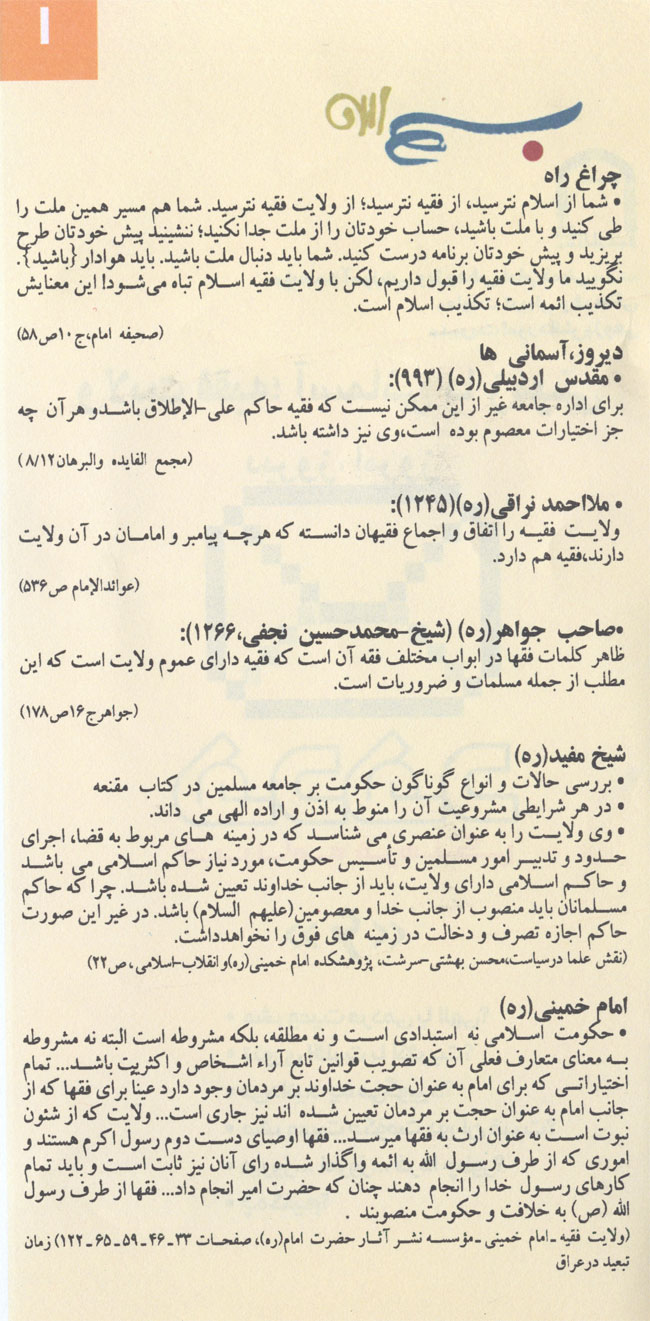 ۱
بسم الله
چراغ راه
• شما از اسلام نترسید، از فقیه نترسید؛ از ولایت فقیه نترسید. شما هم مسیر همین ملت را
طی کنید و با ملت باشید، حساب خودتان را از ملت جدا نکنید؛ ننشینید پیش خودتان طرح
بریزید و پیش خودتان برنامه درست کنید. شما باید دنبال ملت باشید. باید هوادار {باشید}.
نگویید ما ولایت فقیه را قبول داریم، لکن با ولایت فقیه اسلام تباه می‌شود! این معنایش
تکذیب ائمه است؛ تکذیب اسلام است.
(صحیفه امام،ج۱۰ص۵۸)
دیروز،آسمانی ها
• مقدس اردبیلی(ره) (۹۹۳):
برای اداره جامعه غیر از این ممکن نیست که فقیه حاکم علی-الإطلاق باشدو هرآن چه
جز اختیارات معصوم بوده است،وی نیز داشته باشد.
(مجمع الفایده والبرهان۸/۱۲)
• ملااحمد نراقی(ره)(۱۲۴۵):
ولایت فقیه را اتفاق و اجماع فقیهان دانسته که هرچه پیامبر و امامان در آن ولایت
دارند،فقیه هم دارد.
(عوائدالإمام ص۵۳۶)
•صاحب جواهر(ره) (شیخ-محمدحسین نجفی،۱۲۶۶):
ظاهر کلمات فقها در ابواب مختلف فقه آن است که فقیه دارای عموم ولایت است که این
مطلب از جمله مسلمات و ضروریات است.
(جواهرج۱۶ص۱۷۸)
شیخ مفید(ره)
• بررسی حالات و انواع گوناگون حکومت بر جامعه مسلمین در کتاب مقنعه
• در هر شرایطی مشروعیت آن را منوط به اذن و اراده الهی می داند.
• وی ولایت را به عنوان عنصری می شناسد که در زمینه های مربوط به قضا، اجرای
حدود و تدبیر امور مسلمین و تأسیس حکومت، مورد نیاز حاکم اسلامی می باشد
و حاکم اسلامی دارای ولایت، باید از جانب خداوند تعیین شده باشد. چرا که حاکم
مسلمانان باید منصوب از جانب خدا و معصومین(علیهم السلام) باشد. در غیر این صورت
حاکم اجازه تصرف و دخالت در زمینه های فوق را نخواهدداشت.
(نقش علما درسیاست،محسن بهشتی-سرشت، پژوهشکده امام خمینی(ره)و انقلاب-اسلامی، ص۲۲)
امام خمینی(ره)
• حکومت اسلامی نه استبدادی است و نه مطلقه، بلکه مشروطه است البته نه مشروطه
به معنای متعارف فعلی آن که تصویب قوانین تابع آراء اشخاص و اکثریت باشد... تمام
اختیاراتی که برای امام به عنوان حجت خداوند بر مردمان وجود دارد عیناً برای فقها که از
جانب امام به عنوان حجت بر مردمان تعیین شده اند نیز جاری است... ولایت که از شئون
نبوت است به عنوان ارث به فقها میرسد... فقها اوصیای دست دوم رسول اکرم هستند و
اموری که از طرف رسول الله به ائمه واگذار شده رای آنان نیز ثابت است و باید تمام
کارهای رسول خدا را انجام دهند چنان که حضرت امیر انجام داد... فقها از طرف رسول
الله (ص) به خلافت و حکومت منصوبند .
(ولایت فقیه ـ امام خمینی ـ مؤسسه نشر آثار حضرت امام(ره)، صفحات ۳۳ ـ ۴۶ ـ ۵۹ ـ ۶۵ ـ ۱۲۲) زمان
تبعید درعراق